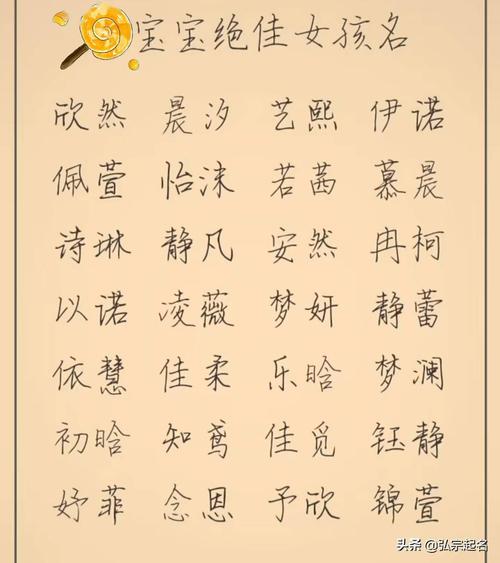 宝宝绝佳女孩名
欣然 晨汐 艺熙 伊诺
佩萱 怡沫 若茜 慕晨
诗琳 静凡 安然 冉柯
以诺 凌薇 梦妍 静蕾
依慧 佳柔 乐晗 梦澜
初晗 知鸢 佳觅 钰静
妤菲 念恩 予欣 锦萱
头条 @弘宗起名